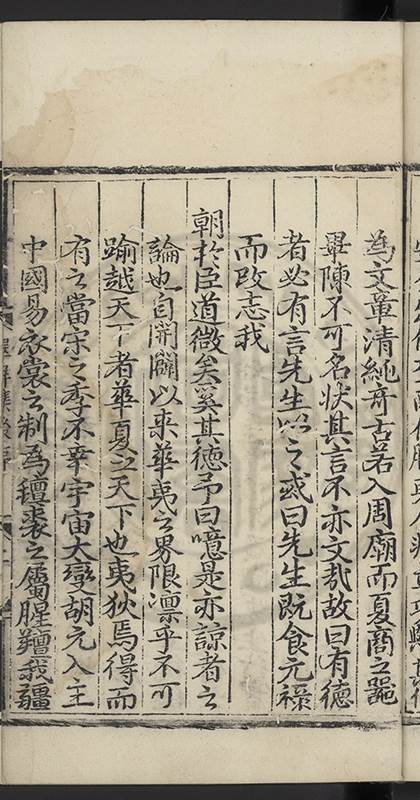 為文童清純奇古若入周廟而夏商之器
畢陳不可名狀其言不亦文哉故曰有德
者必有言先生以之或曰先生既食元祿
而改志我
朝於臣道微矣奚其德予曰噫是亦諒者之
論也自開闢以来華夷之界限凛乎不可
踰越天下者華夏之天下也夷狄焉得而
有之當宋之季不幸宇宙大變胡元入主
中國易衣裳之制為氊裘之屬腥羶我疆